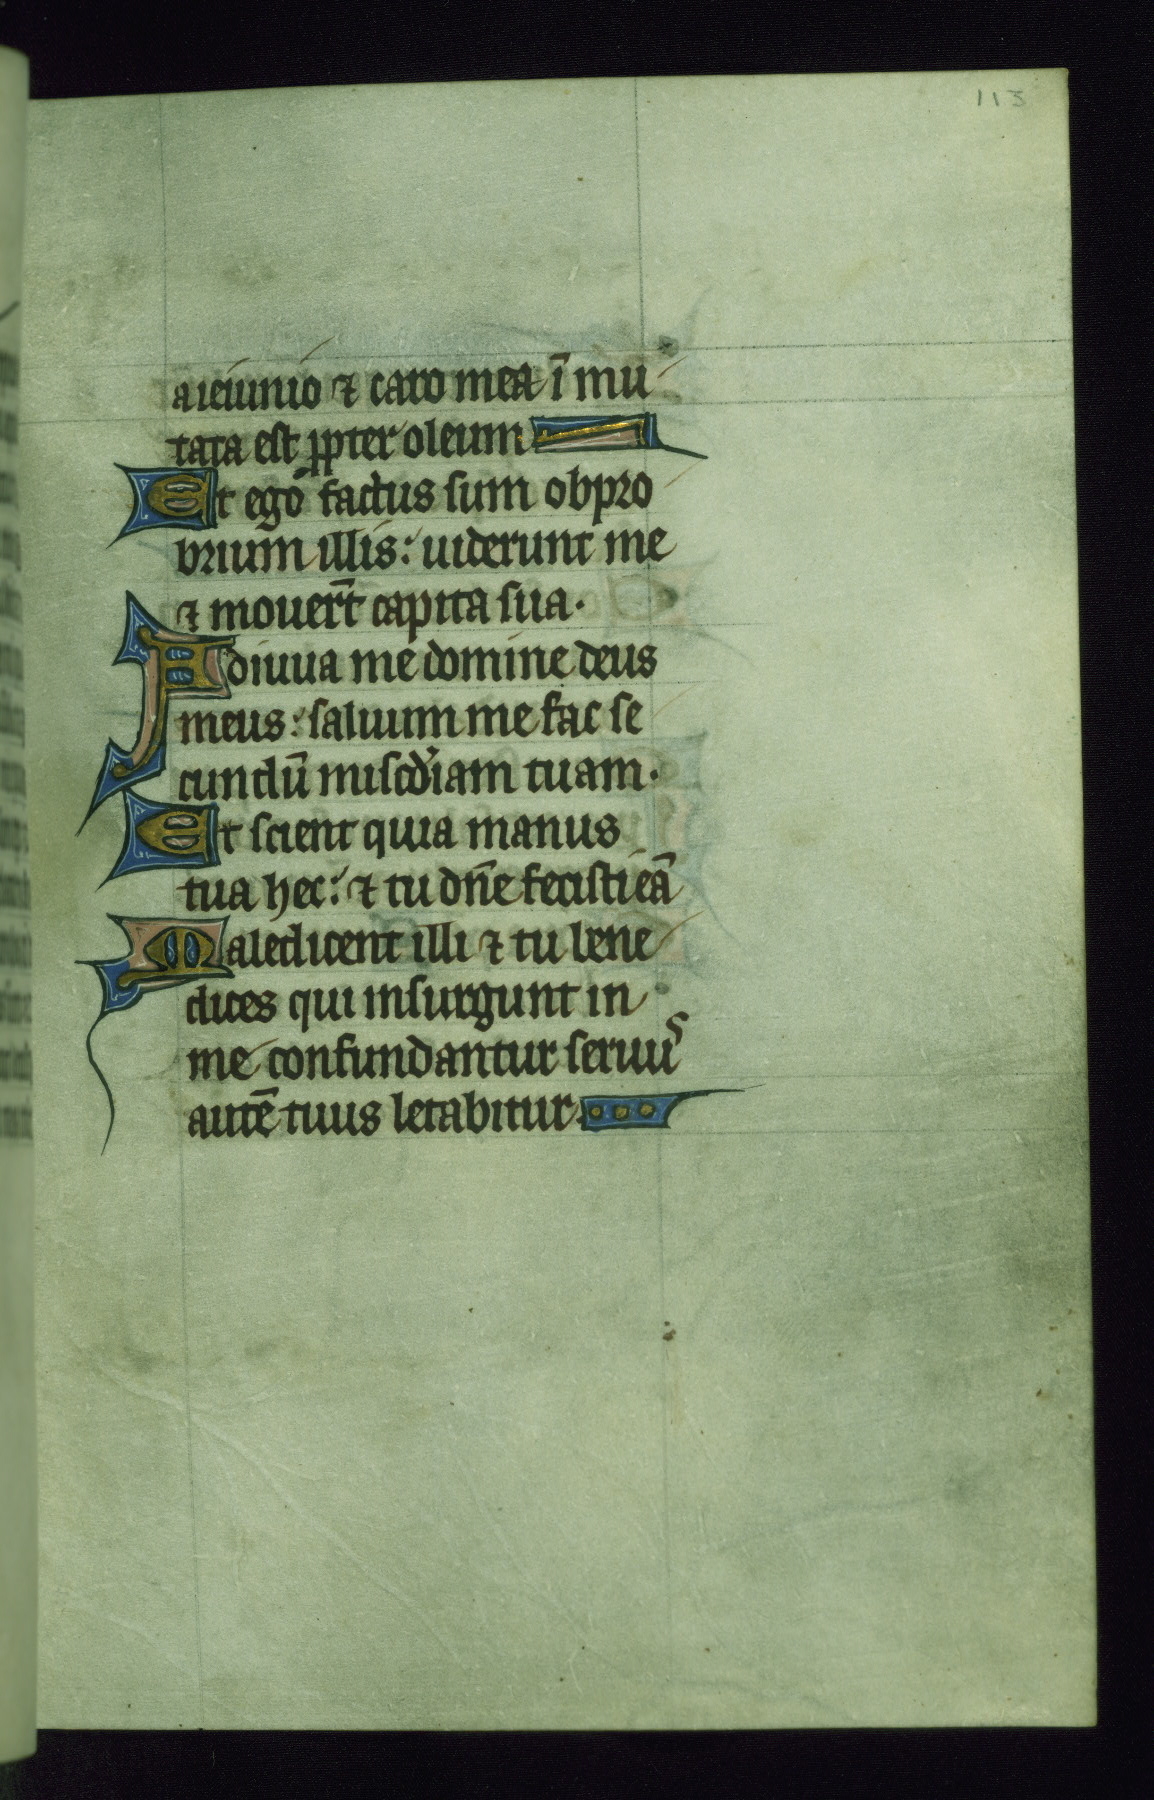 113
a ieiunio ⁊ caro mea ī mu
tata est ꝓpter oleum
Et ego factus sum obpro
brium illis: uiderunt me
⁊ mouer̄t capita sua.
Adiuua me domine deus
meus: saluum me fac se
cundū miscđiam tuam.
Et scient quia manus
tua hec: ⁊ tu dn̄e fecisti eā
Maledicent illi ⁊ tu bene
dices qui insurgunt in
me confundantur seruus
autē tuus letabitur.